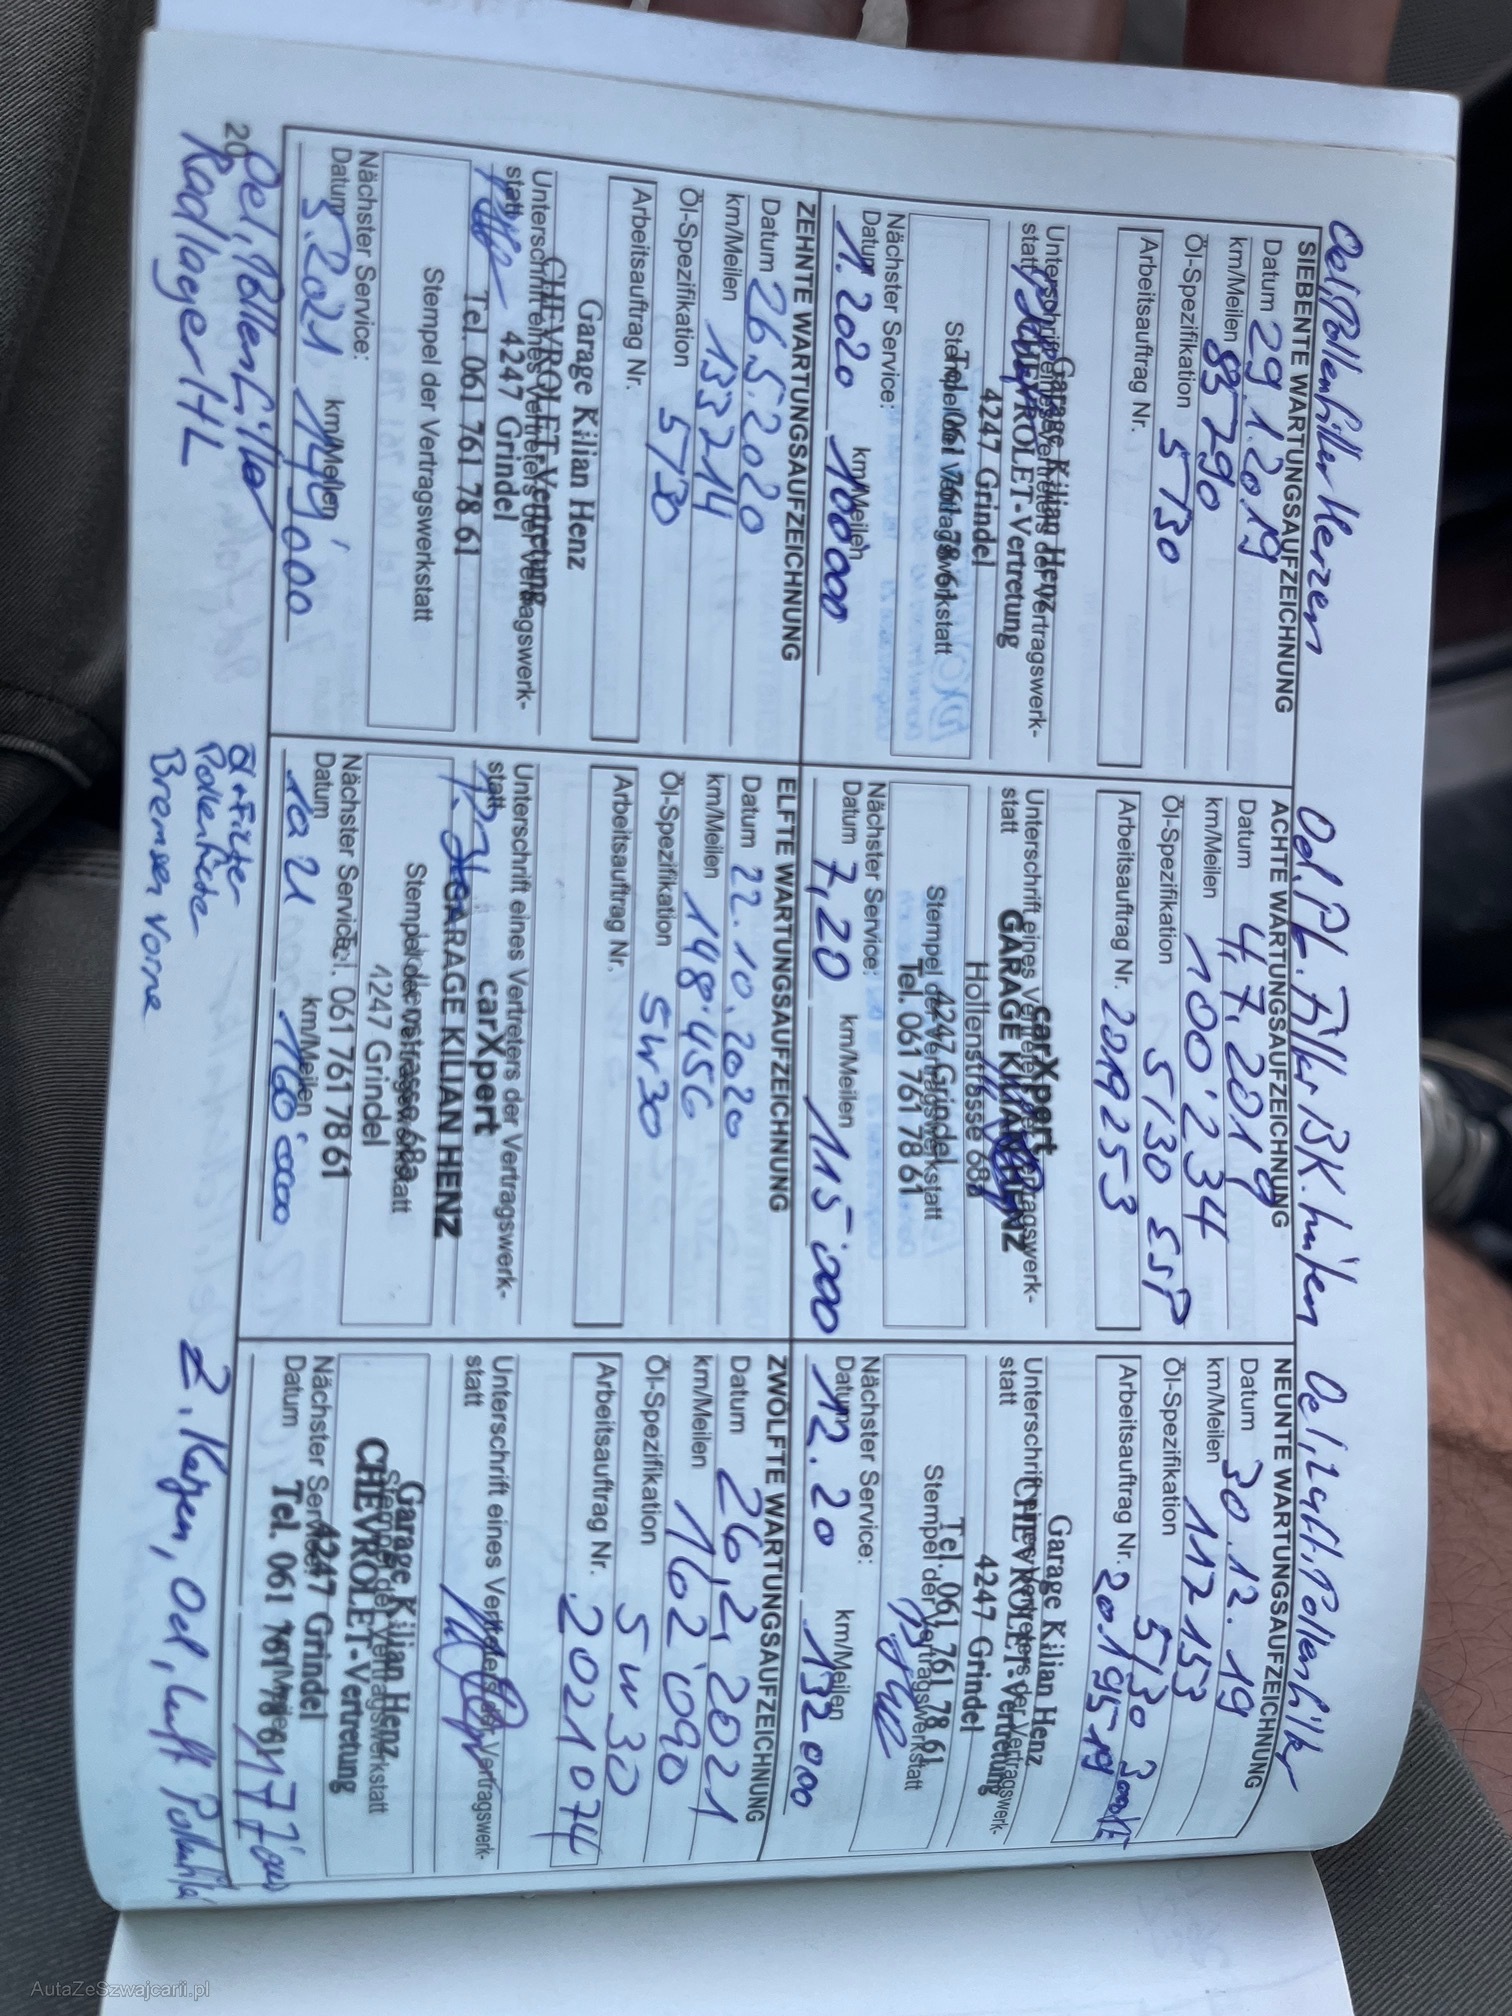 Oel, Pollenfilter Kerzen
SIEBENTE WARTUNGSAUFZEICHNUNG
Datum 29.1.2019
km/Meilen 85290
Öl-Spezifikation 5/30
Arbeitsauftrag Nr.
Unterschrift eines Vertreters der Vertragswerk-
statt
Garage Kilian Henz
CHEVROLET-Vertretung
4247 Grindel
Tel. 061 761 78 61
Stempel der Vertragswerkstatt
Nächster Service:
Datum 1.2020 km/Meilen 100'000
Oel, Filter
ACHTE WARTUNGSAUFZEICHNUNG
Datum 4.7.2019
km/Meilen 100'234
Öl-Spezifikation 5/30
Arbeitsauftrag Nr. 2019253
Unterschrift eines Vertreters der Vertragswerk-
statt
carXpert
GARAGE KILIAN HENZ
Hollenstrasse 68a
4247 Grindel
Tel. 061 761 78 61
Stempel der Vertragswerkstatt
Nächster Service:
Datum 7,20 km/Meilen 115'000
Oel, Luft, Pollenfilter
NEUNTE WARTUNGSAUFZEICHNUNG
Datum 30.12.19
km/Meilen 112153
Öl-Spezifikation 5/30
Arbeitsauftrag Nr.
Unterschrift eines Vertreters der Vertragswerk-
statt
Garage Kilian Henz
CHEVROLET-Vertretung
4247 Grindel
Tel. 061 761 78 61
Stempel der Vertragswerkstatt
Nächster Service:
Datum 12.20 km/Meilen 132000
ZEHNTE WARTUNGSAUFZEICHNUNG
Datum 26.5.2020
km/Meilen 133214
Öl-Spezifikation 5/30
Arbeitsauftrag Nr.
Garage Kilian Henz
CHEVROLET-Vertretung
4247 Grindel
Tel. 061 761 78 61
Unterschrift eines Vertreters der Vertragswerk-
statt
Stempel der Vertragswerkstatt
Nächster Service:
Datum 5.2021 km/Meilen 149'000
20
Oel, Pollenfilter
Radlager HL
ELFTE WARTUNGSAUFZEICHNUNG
Datum 22.10.2020
km/Meilen 148'456
Öl-Spezifikation 5W30
Arbeitsauftrag Nr.
Unterschrift eines Vertreters der Vertragswerk-
statt
carXpert
GARAGE KILIAN HENZ
4247 Grindel
Tel. 061 761 78 61
Stempel der Vertragswerkstatt
Nächster Service:
Datum km/Meilen 160'000
Öl + Filter
Bremsen vorne
ZWÖLFTE WARTUNGSAUFZEICHNUNG
Datum 26.2.2021
km/Meilen 162'090
Öl-Spezifikation 5W30
Arbeitsauftrag Nr. 2021074
Unterschrift eines Vertreters der Vertragswerk-
statt
Garage Kilian Henz
CHEVROLET-Vertretung
4247 Grindel
Tel. 061 761 78 61
Stempel der Vertragswerkstatt
Nächster Service:
Datum km/Meilen 177'000
Oel, Luft
AutaZeSzwajcarii.pl